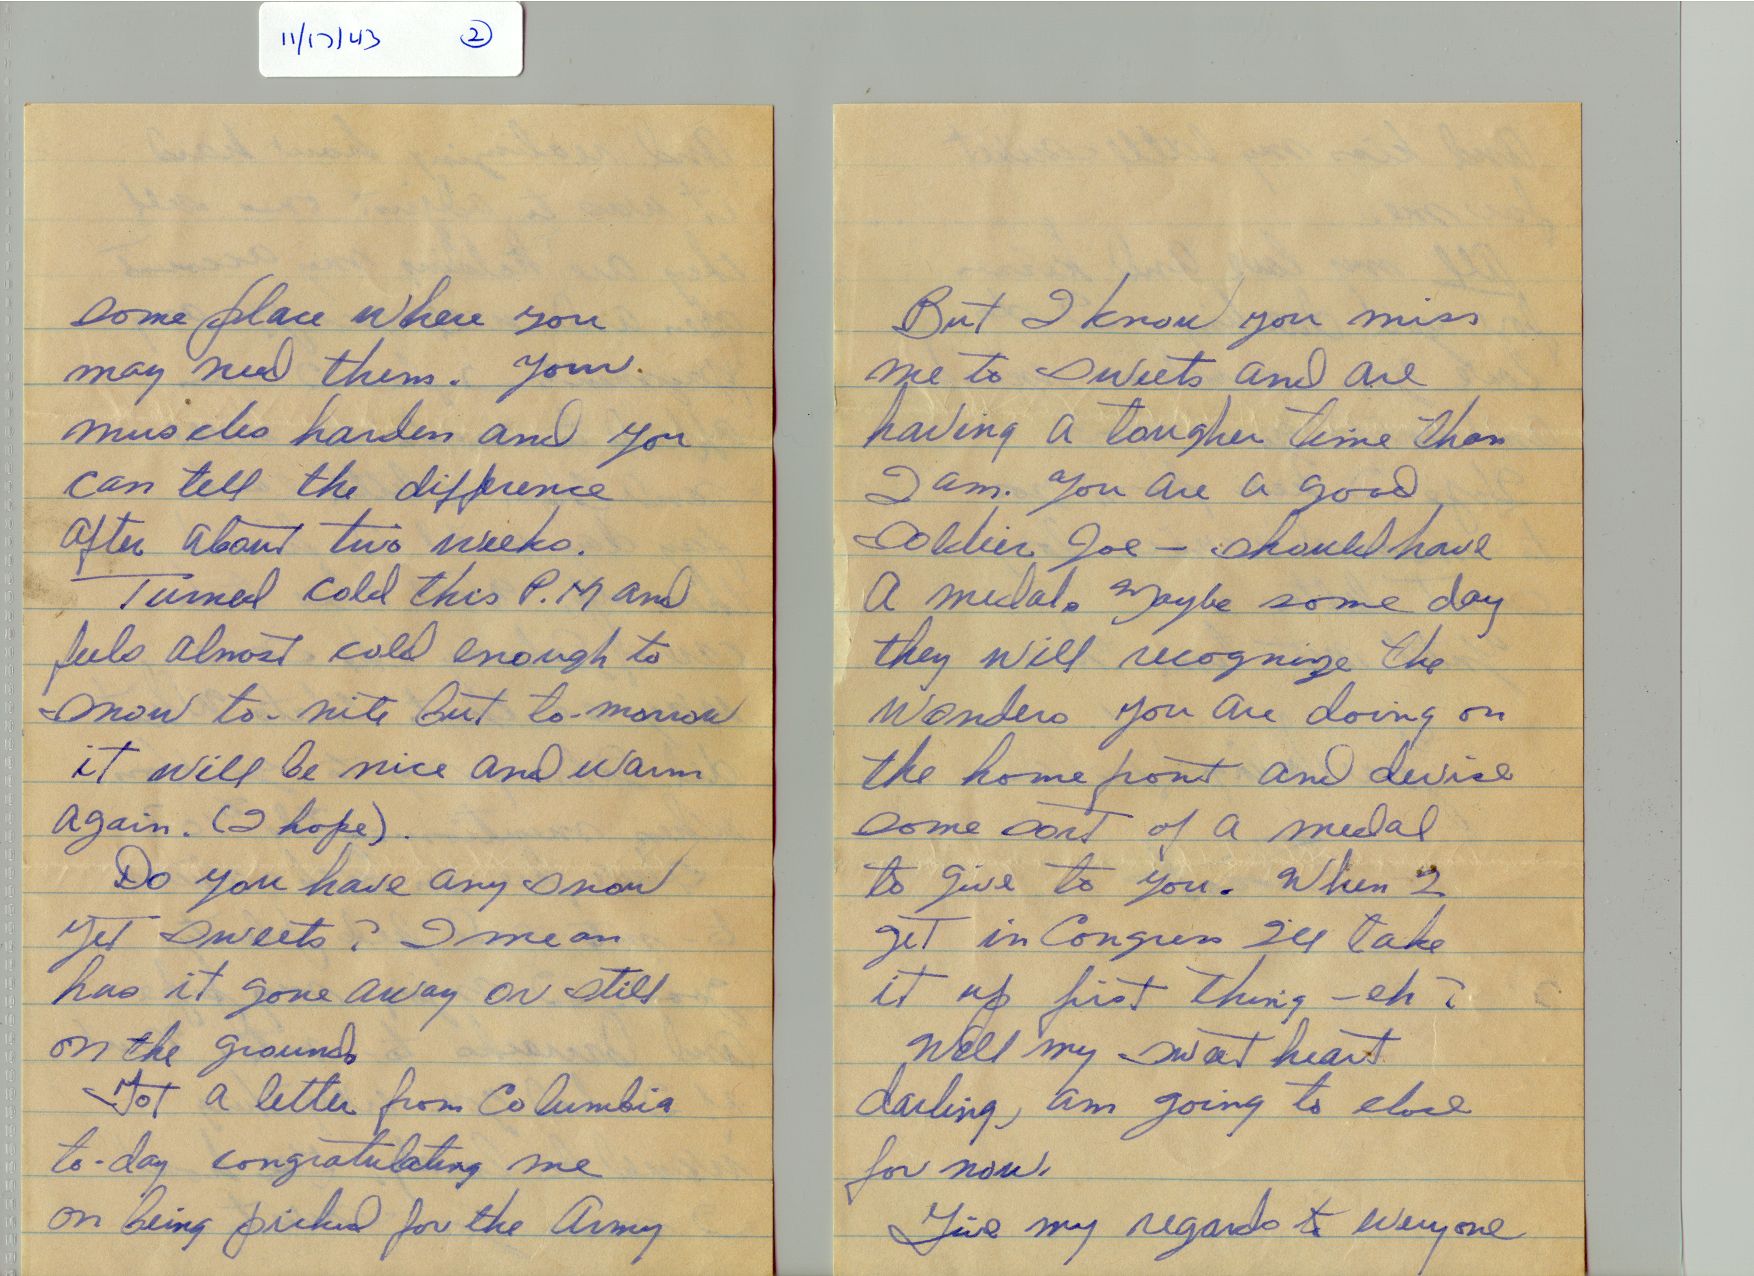 11/17/43 ②
some place where you
may need them. Your
muscles harden and you
can tell the difference
after about two weeks.
Turned cold this P.M and
feels almost cold enough to
snow to-nite but to-morrow
it will be nice and warm
again. (I hope).
Do you have any snow
yet sweets? I mean
has it gone away or still
on the ground.
Got a letter from Columbia
to-day congratulating me
on being picked for the Army
But I know you miss
me to sweets and are
having a tougher time than
I am. You are a good
soldier Joe - should have
a medal. Maybe some day
they will recognize the
wonders you are doing on
the home front and devise
some sort of a medal
to give to you. When I
get in Congress I'll take
it up first thing - eh?
Well my sweet heart
darling, am going to close
for now.
Give my regards to everyone